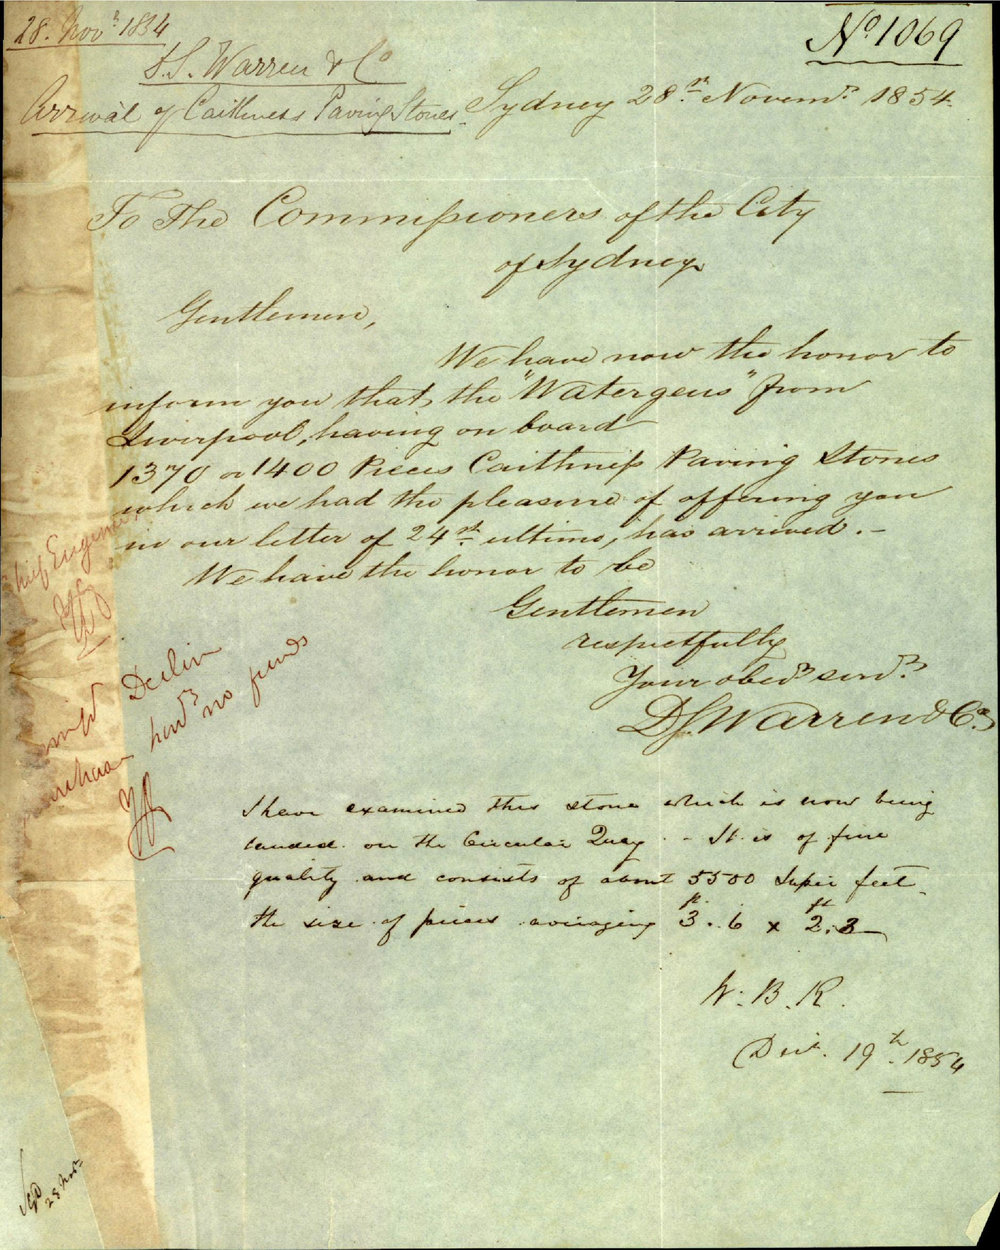 28. Novr 1854
D. S. Warren & Co
Arrival of Caithness Paving Stones
No. 1069
Sydney 28th Novemr. 1854.
To The Commissioners of the City
of Sydney
Gentlemen,
We have now the honor to
inform you that the "Watergeus" from
Liverpool, having on board
1370 or 1400 Pieces Caithness Paving Stones
which we had the pleasure of offering you
in our letter of 24st. ultimo, has arrived. -
We have the honor to be
Gentlemen
respectfully
Your obedt. servt.
D S Warren & Co.
Chief Engineer
Declin
havg no funds
I have examined this stone which is now being
landed on the Circular Quay. - It is of fine
quality and consists of about 5500 Super feet
the size of pieces averaging 3 ft. 6 x 2 ft. 3
W. B. R.
Decr. 19th. 1854
28 Novr